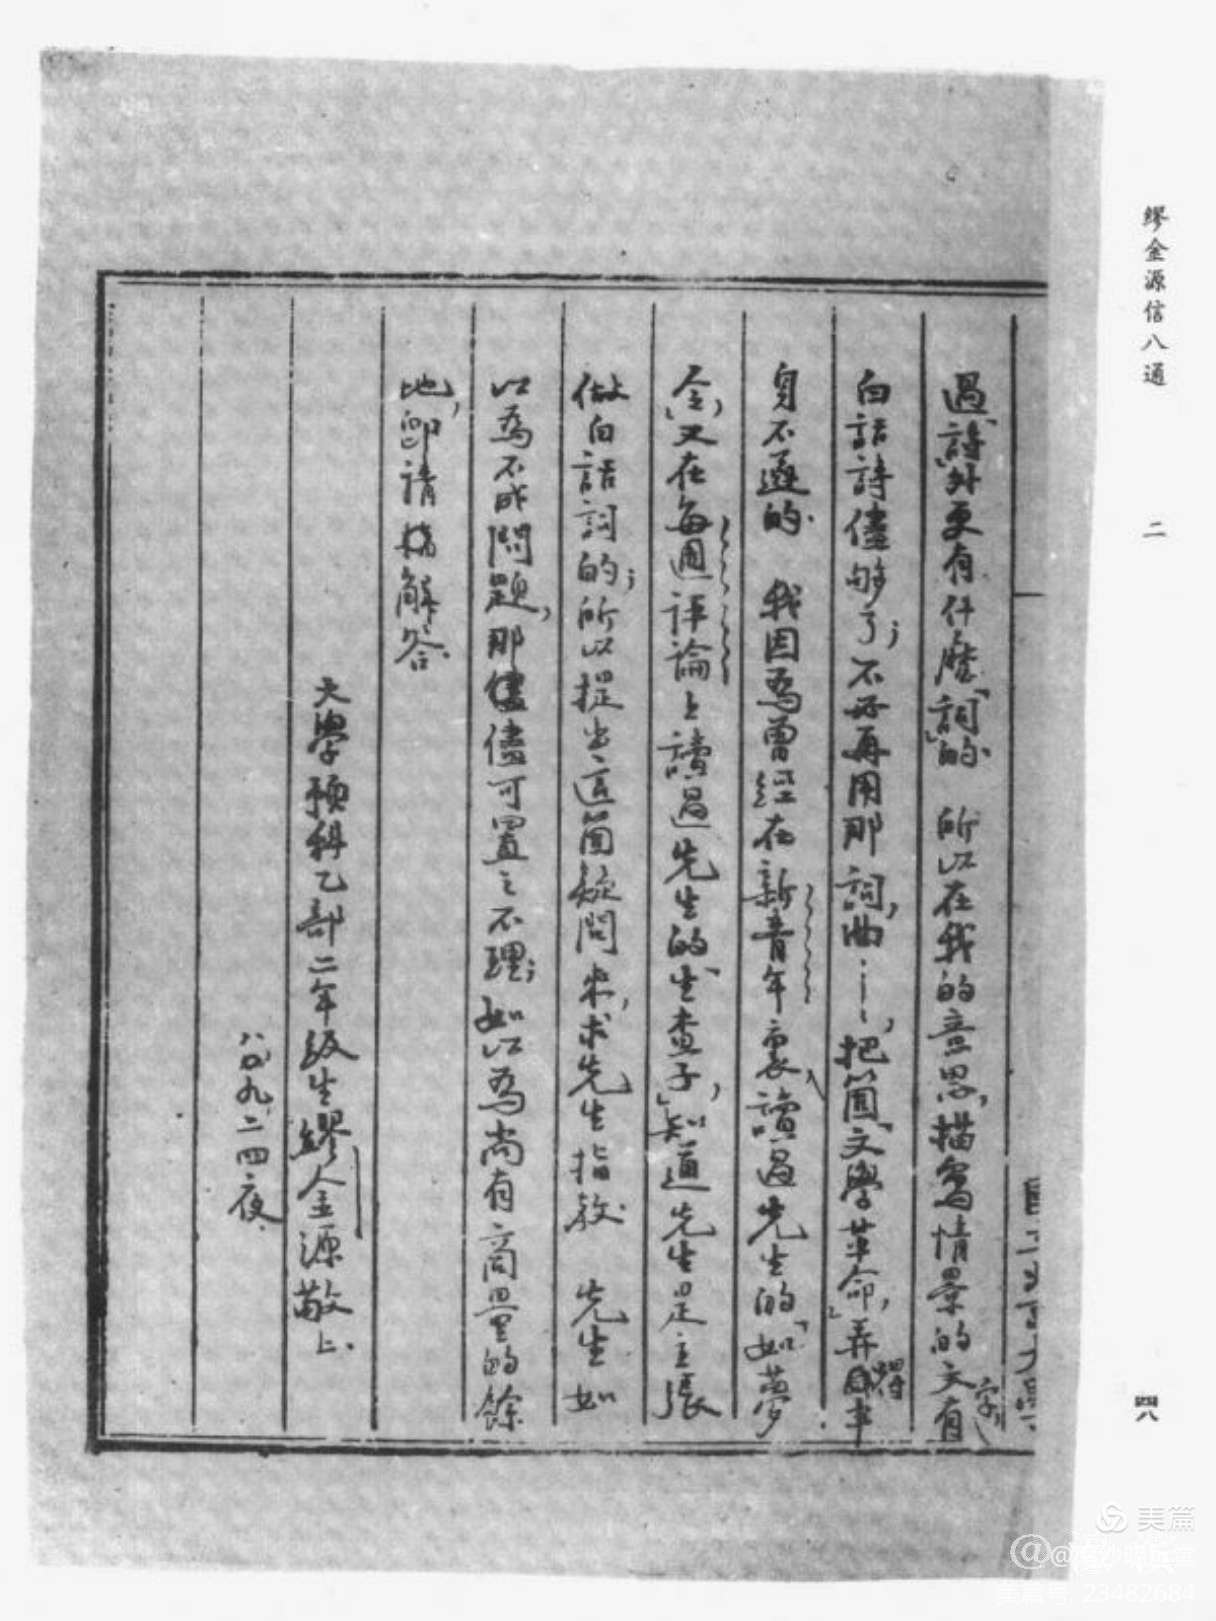 繆金源信八通 二
四八
過「詩」外更有什麼「詞」的 所以在我的意思,描寫情景的文字,有
白話詩儘够了;不必再用那詞,曲……,把箇「文學革命」,弄得半
身不遂的. 我因為曾經在新青年裏,讀過先生的「如夢
令」,又在每週評論上讀過先生的「生查子」,知道先生是主張
做白話詞的;所以提出這箇疑問來,求先生指教. 先生如
以為不成問題,那儘儘可置之不理;如以為尚有商量的餘
地,卽請 解答.
大學預科乙部二年級生繆金源敬上.
八,九,二四夜.
美篇
23482684